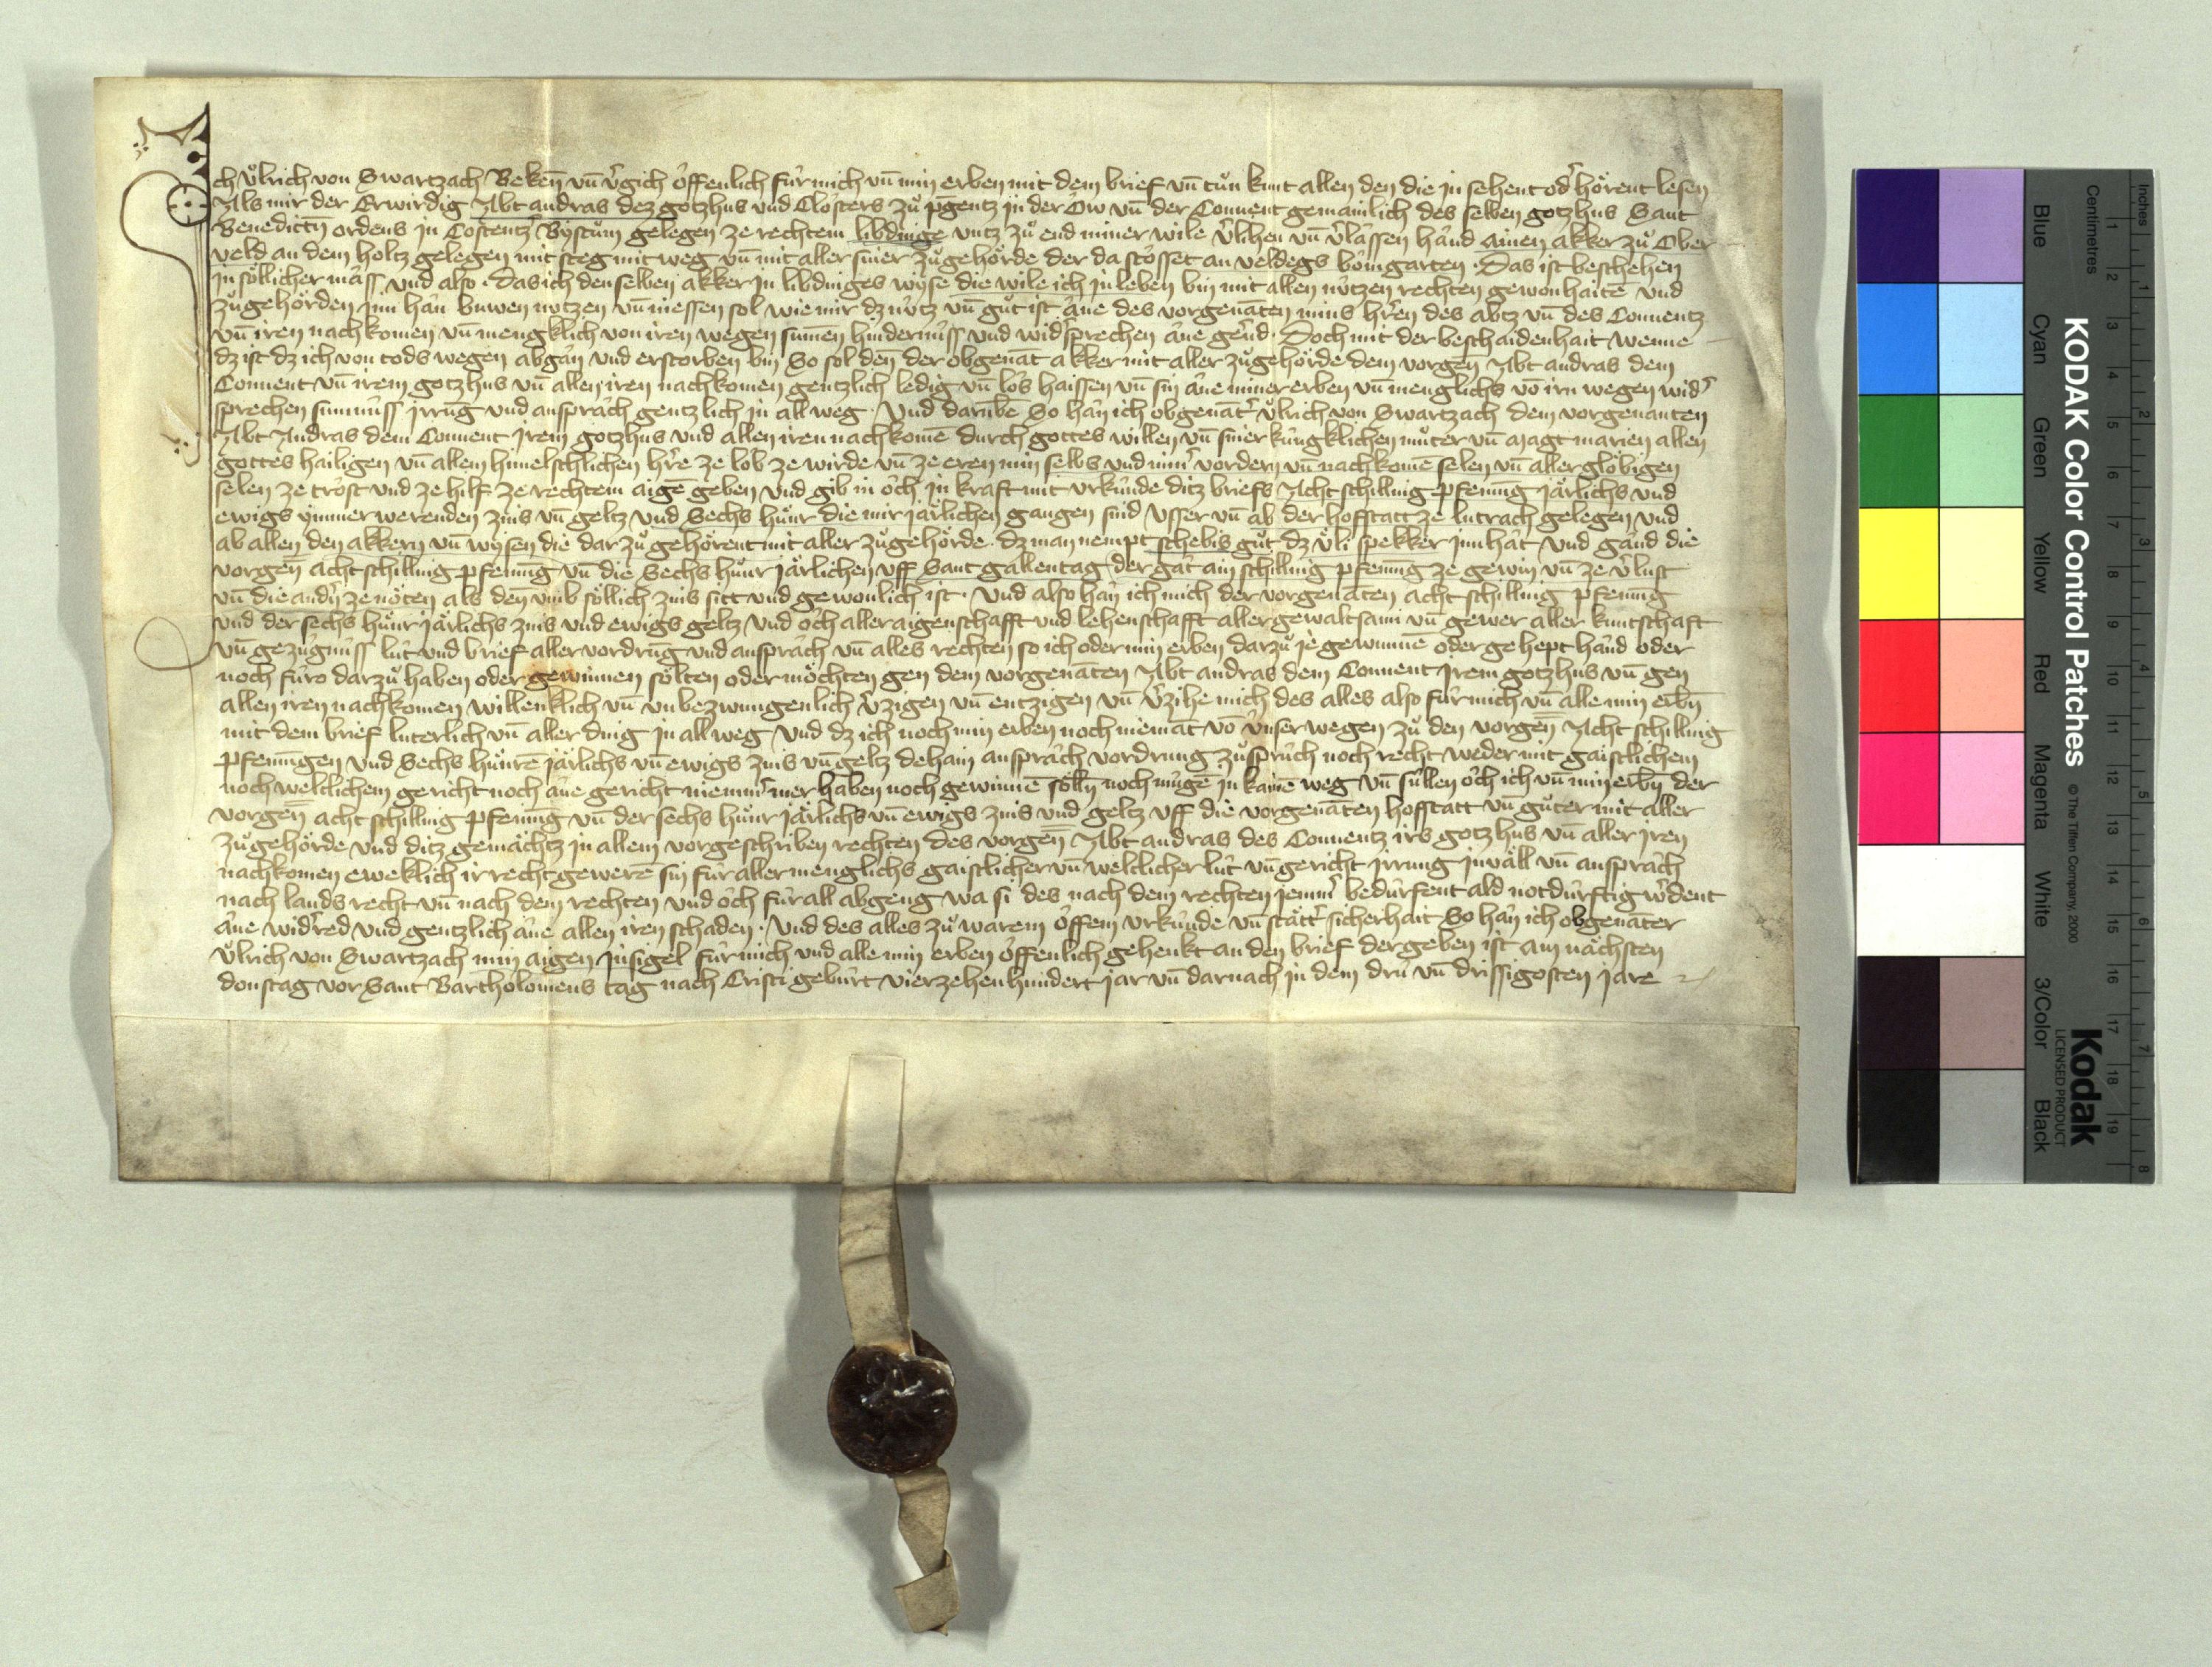 Ich Ůlrich von Swartzach Bekenn̄ vn̄ v͛gich offenlich für mich vn̄ min erben mit dem brief vn̄ tůn kunt allen den die jn sehent od͛ hörent lesen
Als mir der Erwirdig Abt andras dez gotzhus vnd Closters zů pgentz jn der Ow vn̄ der Conuent gemainlich des selben gotzhus Sant
Benedictn̄ ordens jn Costentz͛ Bystům gelegen ze rechtem libdinge vntz zů end miner wile v͛lihen vn̄ v͛lassen hand ainen akker zů Ober
veld an dem holtz gelegen mit steg mit weg vn̄ mit aller siner zůgehörde der da stosset an veldegs bomgarten · Das ist beschehen
jn söllicher mäss vnd also · Das ich den selben akker jn libdinges wyse die wile ich jn leben bin mit allen nützen rechten gewonhaitē vnd
zůgehörden jnn han buwen nutzen vn̄ niessen sol wie mir dz nütz vn̄ gůt ist ane des vorgenāten mins hr̄en des abtz vn̄ des Conuentz
vn̄ iren nachkomen vn̄ mengklich von iren wegen sumen hindernüss vnd wid͛sprechen ane gend · Doch mit der beschaidenhait wenne
dz ist dz ich von tods wegen abgan vnd erstorben bin So sol den der obgenāt akker mit aller zůgehörde dem vorgen̄ Abt andras dem
Conuent vn̄ irem gotzhus vn̄ allen iren nachkomen gentzlich ledig vn̄ los haissen vn̄ sin ane miner erben vn̄ menglichs vō irn wegen wid͛
sprechen sumnüss jrrūg vnd ansprach gentzlich jn all weg · Vnd darūbē So han ich obgenāt͛ Ůlrich von Swartzach dem vorgenanten
Abt Andras dem Conuent jrem gotzhus vnd allen iren nachkomē durch gottes willen vn̄ siner küngklichen můter vn̄ magt marien allen
gottes hailigen vn̄ allem himelschlichen hr̄e ze lob ze wirde vn̄ ze eren min selbs vnd min͛ vordern vn̄ nachkomē selen vn̄ aller glöbigen
selen ze trost vnd ze hilf ze rechtem aigē geben vnd gib in och jn kraft mit vrkunde ditz briefs Acht schilling pfenning järlichs vnd
ewigs ymmer werenden zins vn̄ geltz vnd Sechs hůnr die mir järlichen gangen sind vsser vn̄ ab der hofstatt ze lutrach gelegen vnd
ab allen den akkern vn̄ wysen die dar zů gehörent mit aller zůgehörde · dz man nempt schebis gůt dz ůli spekker jnn hat vnd gand die
vorgen̄ acht schilling pfenning vn̄ die Sechs hůnr järlichen vff Sant gallentag der gat ain schilling pfenning ze gewin vn̄ ze v͛lust
vn̄ die and͛n ze nöten als den vmb söllich zins sitt vnd gewonlich ist · Vnd also han ich mich der vorgenāten acht schilling pfenning
vnd der sechs hůnr järlichs zins vnd ewigs geltz vnd och aller aigenschafft vnd lehenschafft aller gewaltsami vn̄ gewer aller kuntschaft
vn̄ gezügnüss lüt vnd brief aller vordrūg vnd ansprach vn̄ alles rechten so ich oder min erben darzů je gewunnē oder gehept hand oder
noch füro darzů haben oder gewinnen sölten oder möchten gen dem vorgenāten Abt andras dem Conuent jrem gotzhus vn̄ gen
allen iren nachkomen willenklich vn̄ vnbezwungenlich v͛zigen vn̄ entzigen vn̄ v͛zihe mich des alles also für mich vn̄ alle min erbn̄
mit dem brief luterlich vn̄ aller ding jn all weg vnd dz ich noch min erben noch niemāt vō vnser wegen zů den vorgen̄ Acht schilling
pfenningen vnd Sechs hůnrē järlichs vn̄ ewigs zins vn̄ geltz dehain ansprach vordrung zůsprüch noch recht weder mit gaistlichem
noch weltlichem gericht noch ane gericht niemm͛mer haben noch gewinnē sölln̄ noch mügē jn kainē weg vn̄ süllen och ich vn̄ min erbn̄ der
vorgen̄ acht schilling pfenning vn̄ der sechs hůnr järlichs vn̄ ewigs zins vnd geltz vff die vorgenāten hofstatt vn̄ gůter mit aller
zůgehörde vnd ditz gemächtz jn allem vorgeschriben rechten des vorgen̄ Abt andras des Conuentz irs gotzhus vn̄ aller jren
nachkomen eweklich ir recht gewerē sin für aller menglichs gaistlicher vn̄ weltlicher lüt vn̄ gericht jrrung jnväll vn̄ ansprach
nach lands recht vn̄ nach dem rechten vnd och für all abgeng wa si des nach dem rechten jemm͛ bedürfent ald notdürftig w͛dent
ane wid͛red vnd gentzlich ane allen iren schaden · Vnd des alles zů warem offem vrkünde vn̄ stätt͛ sicherhait So han ich obgenāter
Ůlrich von Swartzach min aigen jnsigel für mich vnd alle min erben offenlich gehenkt an den brief der geben ist am nächsten
donstag vor Sant Bartholomeus tag nach Cristi gebürt vierzehenhundert jar vn̄ darnach jn dem drü vn̄ drissigosten jare
KODAK Color Control Patches © The Tiffen Company, 2000
Kodak
LICENSED PRODUCT
Inches
Centimetres
Blue Cyan Green Yellow Red Magenta White 3/Color Black
1 2 3 4 5 6 7 8
1 2 3 4 5 6 7 8 9 10 11 12 13 14 15 16 17 18 19